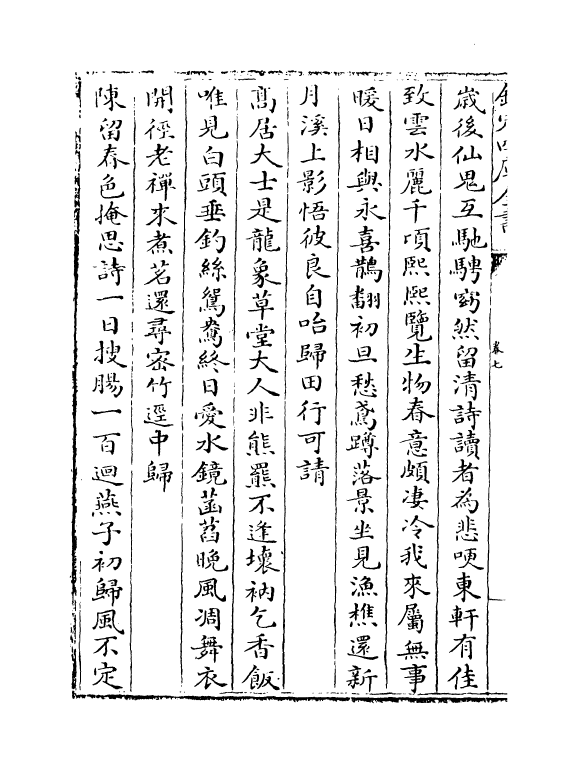 欽定四庫全書
卷七
歳後仙鬼互馳騁窈然留清詩讀者為悲哽東軒有佳
致雲水麗千項熙熙覽生物春意頗凄冷我來屬無事
暖日相與永喜鵲翻初旦愁鳶蹲落景坐見漁樵還新
月溪上影悟彼良自咍歸田行可請
髙居大士是龍象草堂大人非熊羆不逢壞衲乞香飯
唯見白頭垂釣絲鴛鴦終日愛水鏡菡萏晚風凋舞衣
開徑老禪來煮茗還尋密竹逕中歸
陳留春色掩思詩一日搜腸一百迴燕子初歸風不定